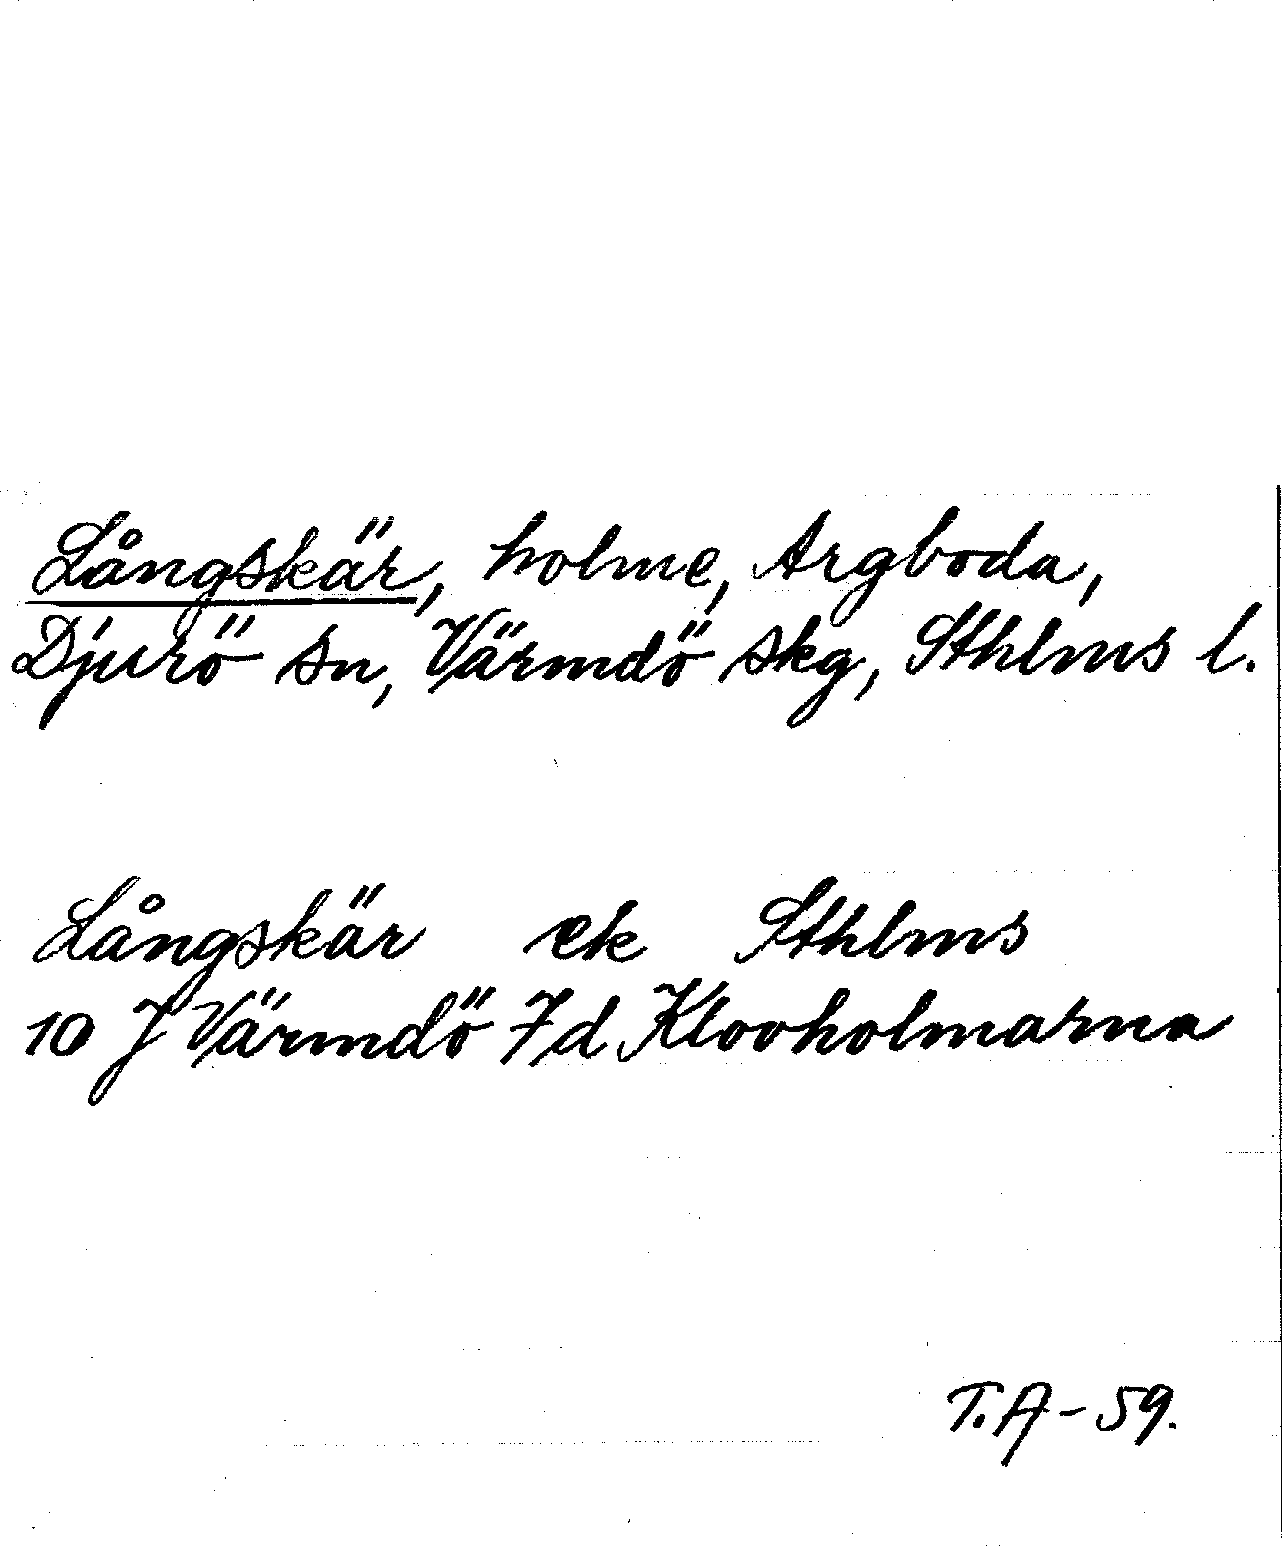 Långskär, holme, Argboda,
Djurö sn, Värmdö skg, Sthlms l.
Långskär ek Sthlms
10 J Värmdö 7d Klovholmarna
T.A-59.